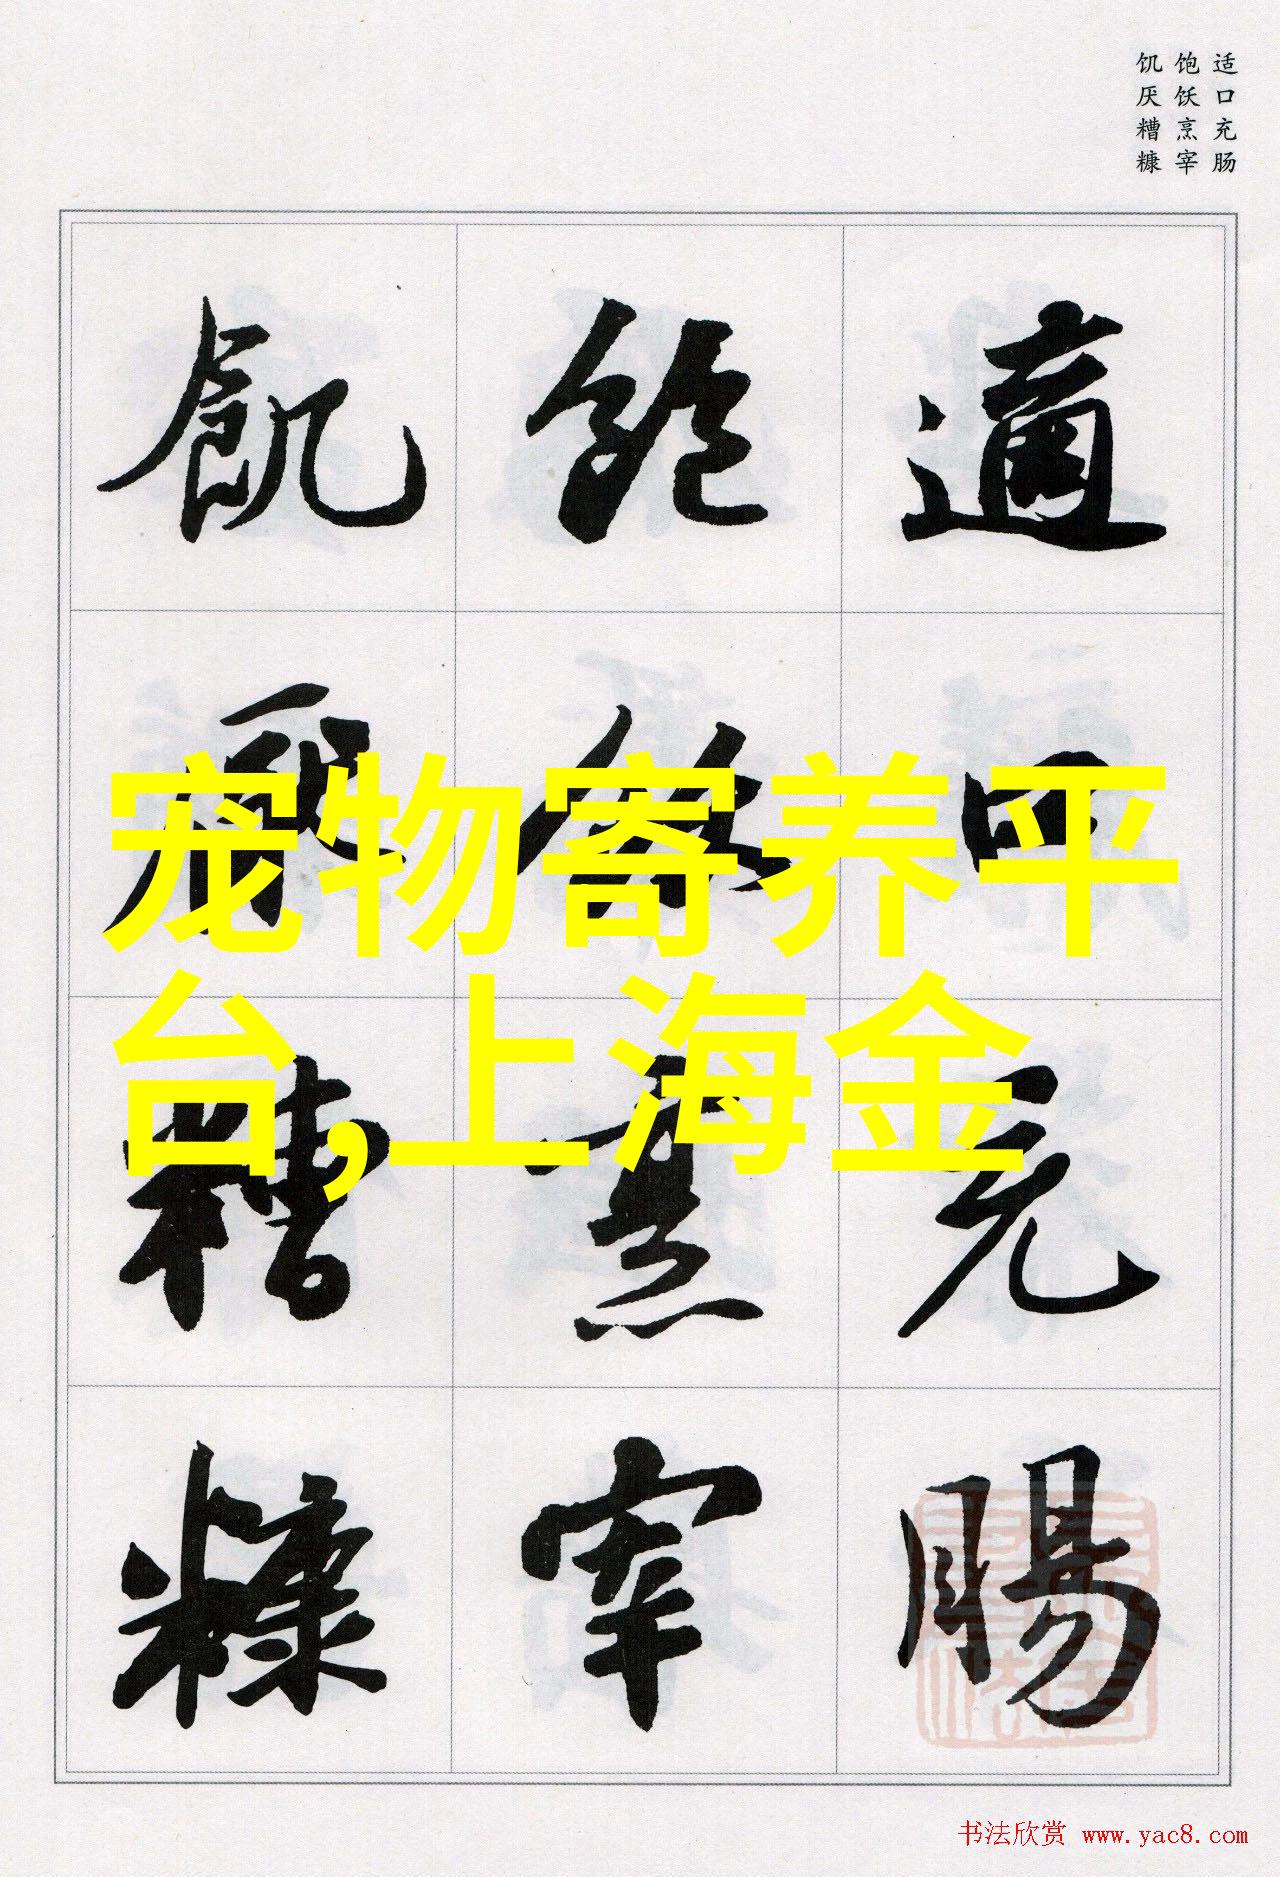 适口充肠
饱饫烹宰
饥厌糟糠
適口充腸
飽飫烹宰
飢厭糟糠
宠物寄养平
台,上海金
书法欣赏 www.yac8.com